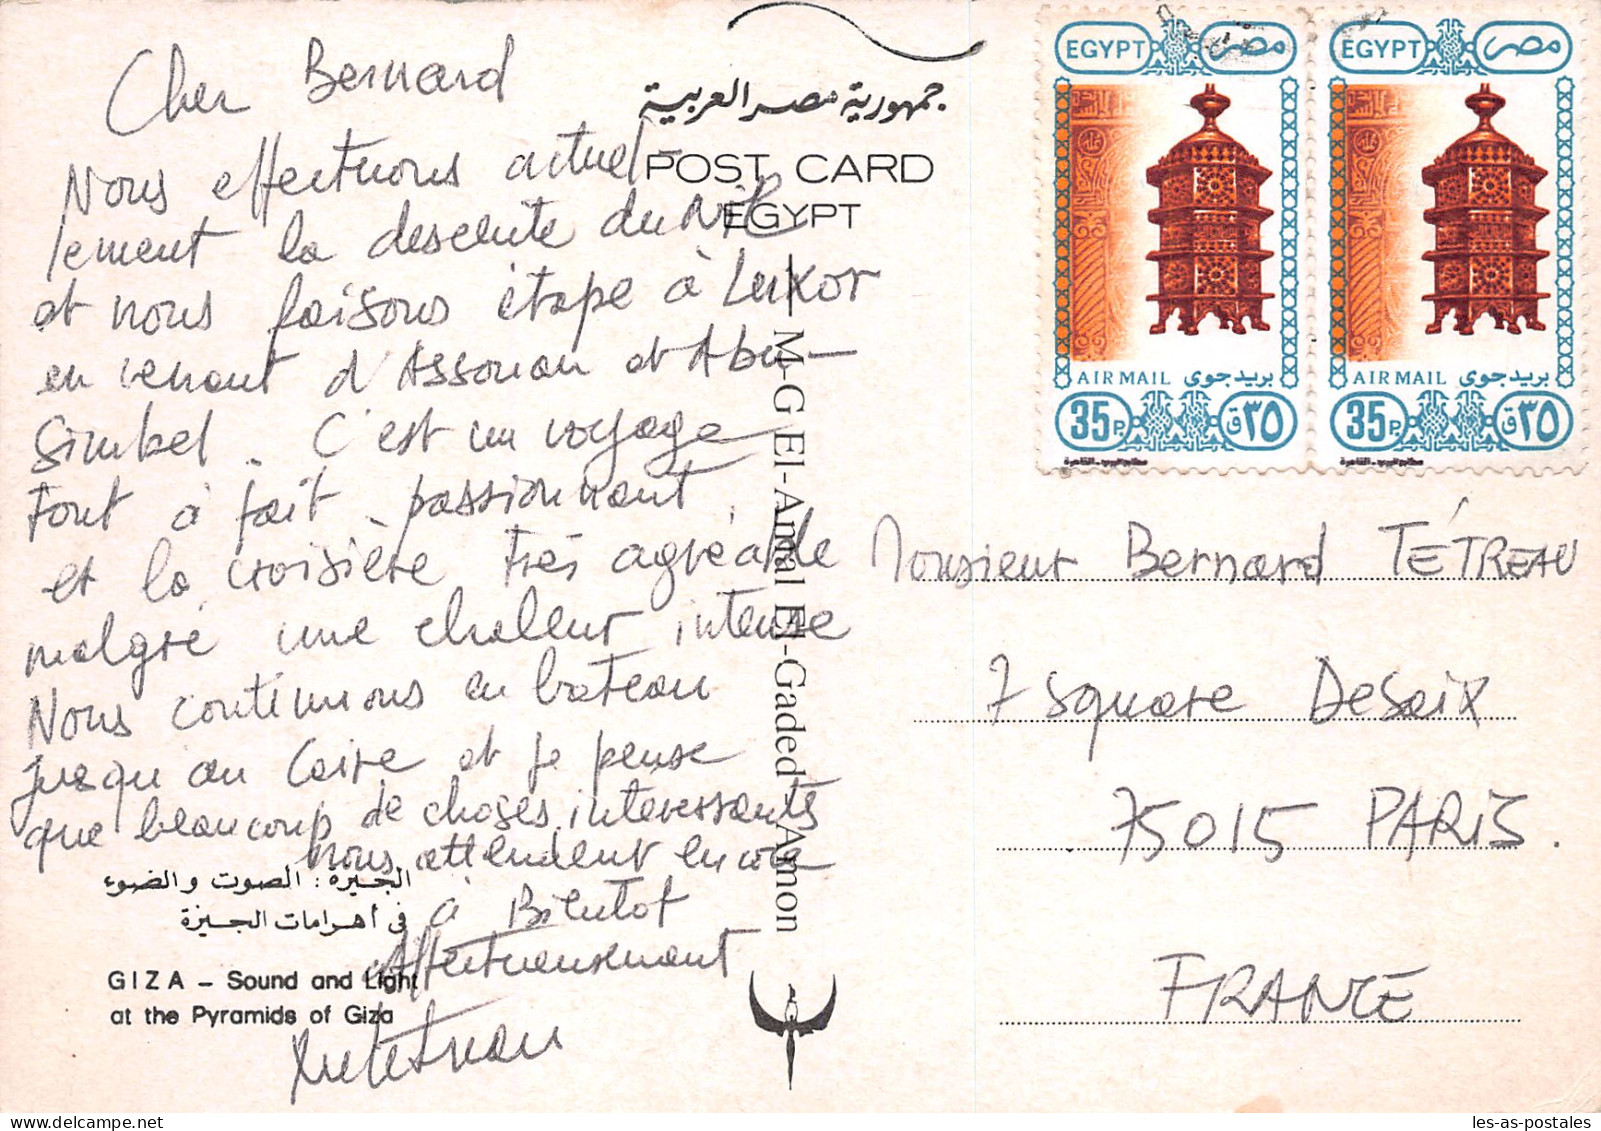 Cher Bernard
Nous effectuons actuel-
lement la descente du Nil
et nous faisons étape à Luxor
en venant d'Assouan et Abu-
Simbel. C'est un voyage
tout à fait passionnant,
et la croisière très agréable
malgré une chaleur intense
Nous continuons en bateau
jusqu'au Caire et je pense
que beaucoup de choses interessants
nous attendent encore
à Bientot
affectueusement
جمهورية مصر العربية
POST CARD
EGYPT
M-G El-Amal El-Gaded - Amon
الجيزة : الصوت والضوء
في أهرامات الجيزة
GIZA - Sound and Light
at the Pyramids of Giza
EGYPT مصر
AIR MAIL بريد جوى
35P. ٣٥ق
EGYPT مصر
AIR MAIL بريد جوى
35P. ٣٥ق
Monsieur Bernard TÉTREAU
7 square Desaix
75015 PARIS.
FRANCE
les-as-postales